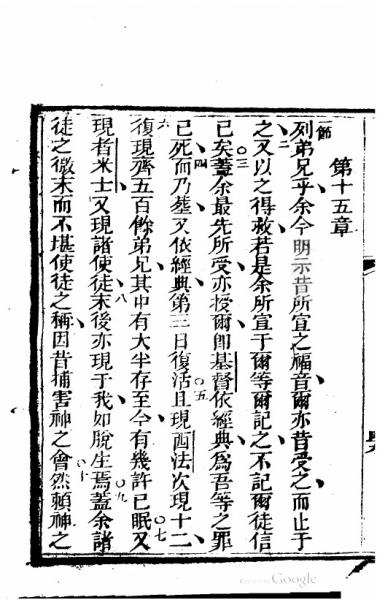 第十五章
一節列弟兄乎余今明示昔所宣之福音爾亦昔受之而止于
之二又以之得救若是余所宣于爾等爾記之不記爾徒信
已矣三蓋余最先所受亦授爾卽基督依經典爲吾等之罪
已死四而乃葬又依經典第三日復活五且現西法次現十二
六復現齊五百餘弟兄其中有大半存至今有幾許已眠七又
現者米士又現諸使徒八末後亦現于我如脫生焉九蓋余諸
徒之微末而不堪使徒之稱因昔捕害神之會十然賴神之
Google